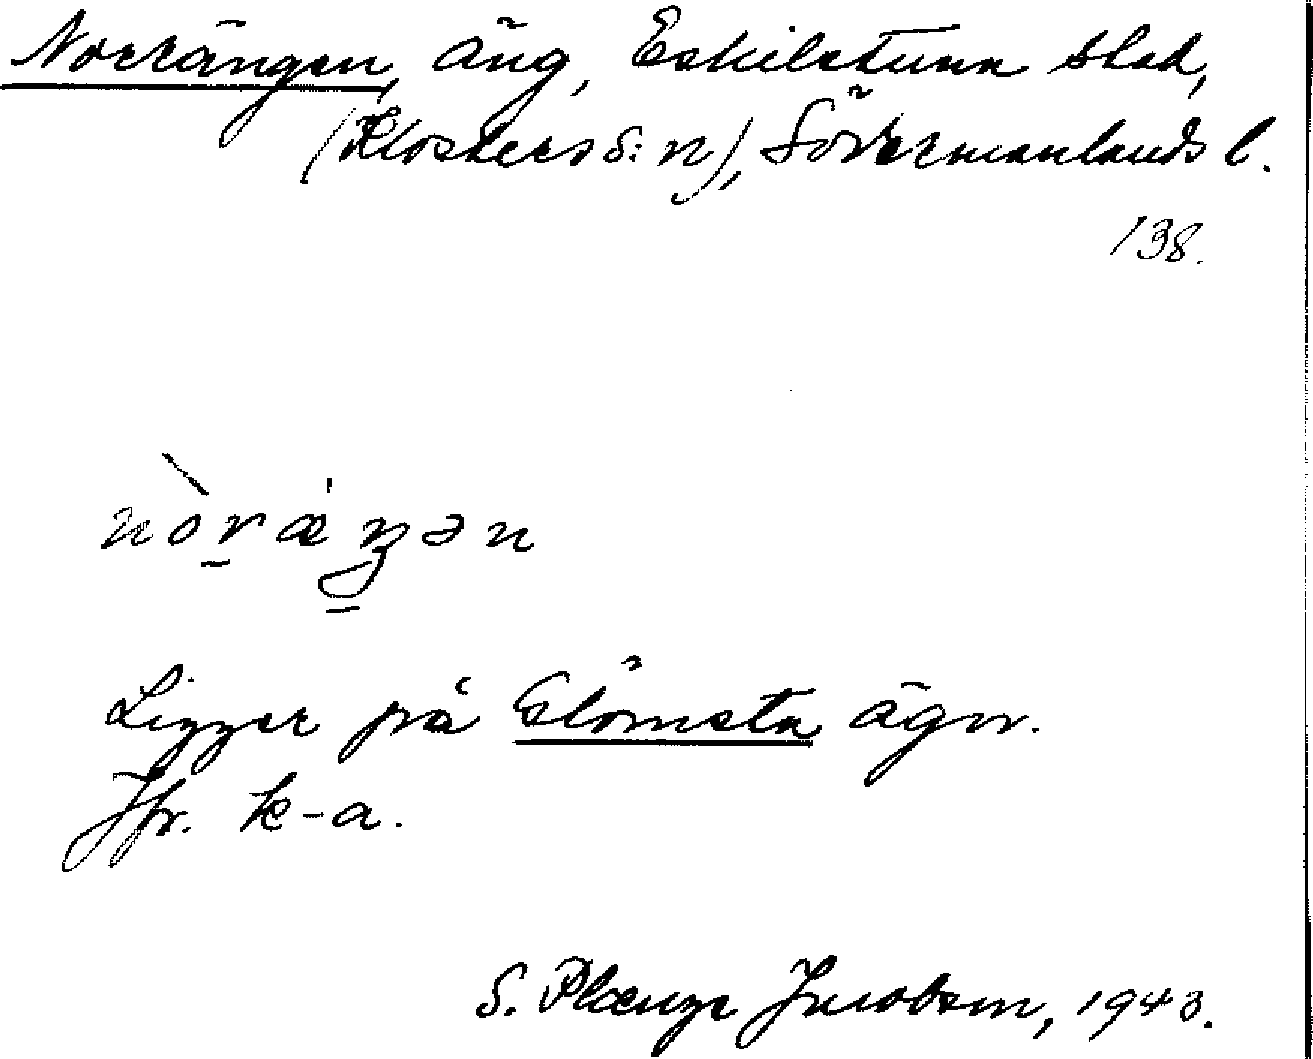 Norrängen, äng, Eskilstuna stad,
(Klosters s:n), Södermanlands l.
138.
nòrǽŋən
Ligger på Slömsta ägor.
Jfr. k-a.
S. Plænge Jacobson, 1943.